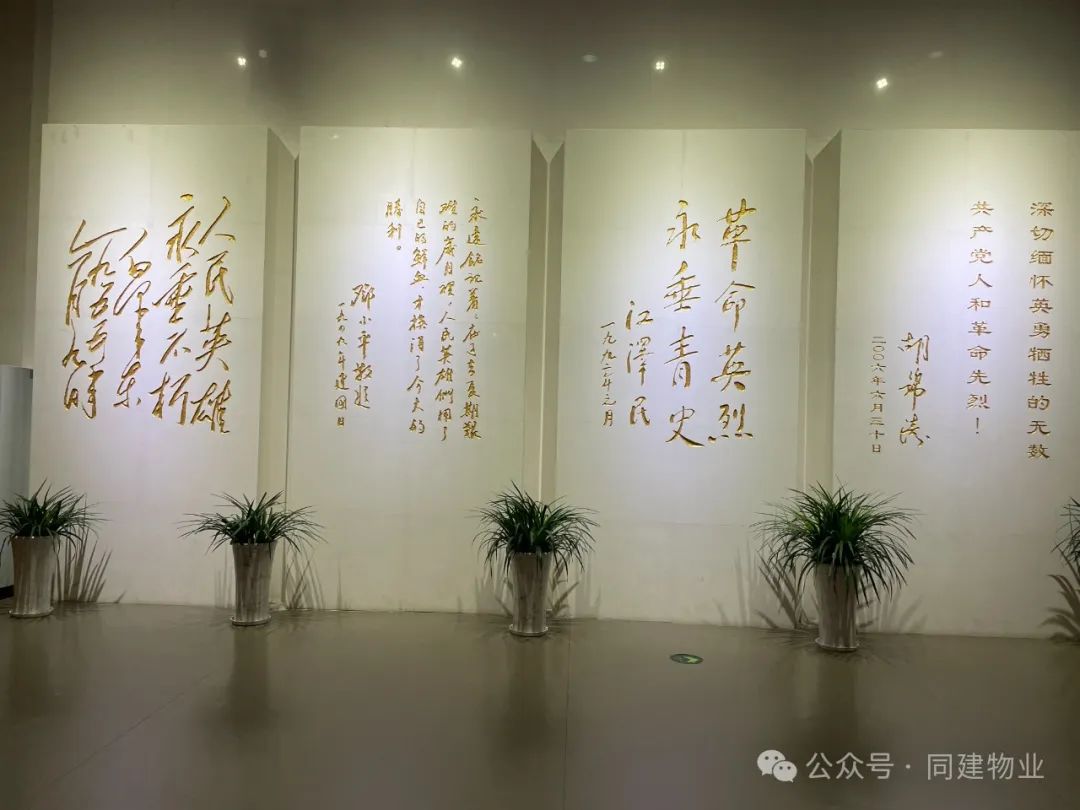 人民英雄
永垂不朽
毛澤东
永遠銘记著，在过去長期艱
难的歲月裡，人民英雄們用了
自己的鲜血，才换得了今天的
勝利。
鄧小平敬题
一九四九年建國日
革命英烈
永垂青史
江澤民
一九九二年元月
深切缅怀英勇牺牲的无数
共产党人和革命先烈！
胡锦涛
二〇〇六年六月三十日
公众号·同建物业